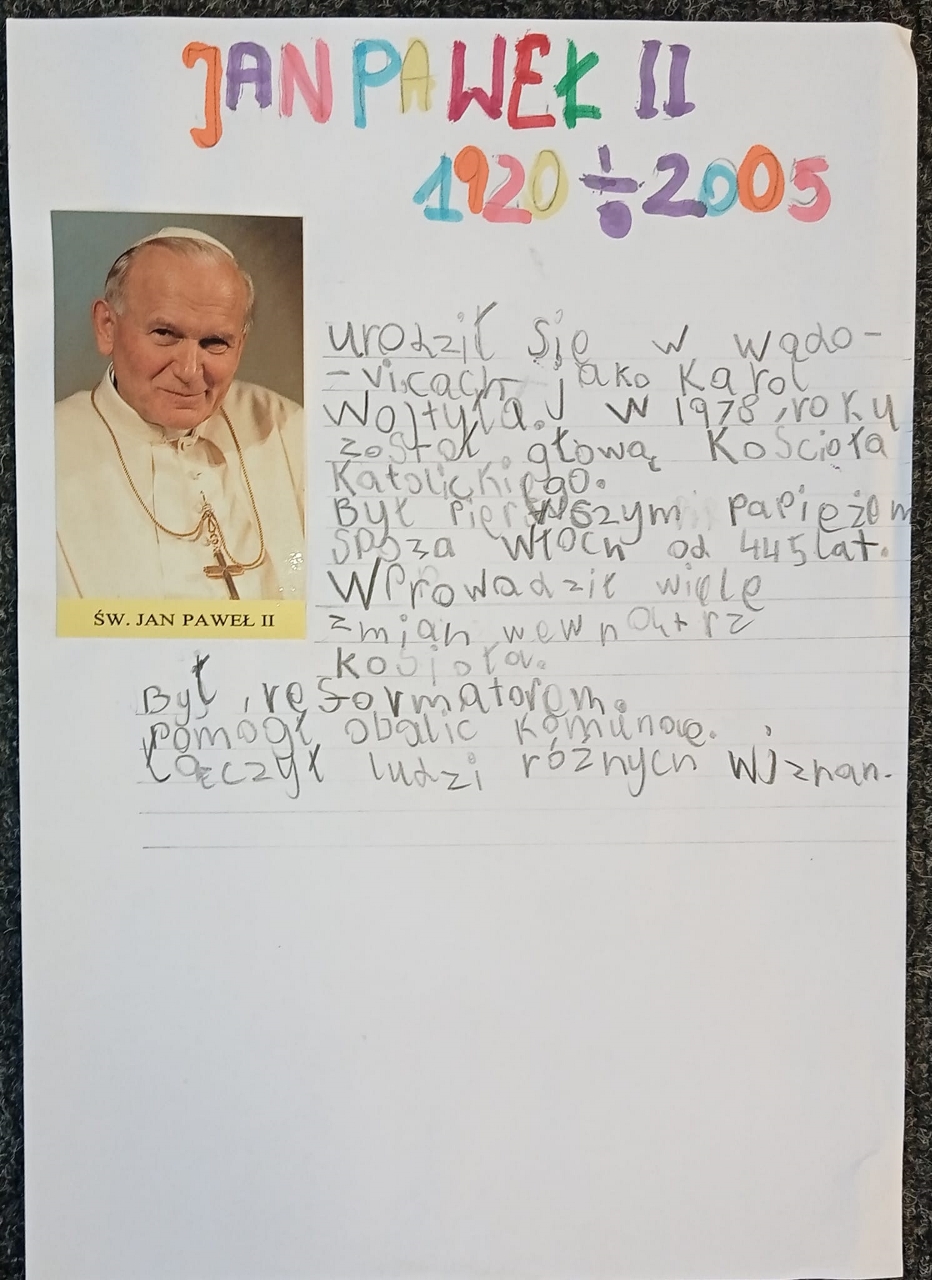 JAN PAWEŁ II
1920÷2005
urodził się w wado-
-vicach jako Karol
Wojtyła. W 1978 roku
został głową Kościoła
Katolickiego.
Był pierwszym papieżem
spoza Włoch od 445 lat.
Wprowadził wiele
zmian wewnątrz
kosioła.
Był reformatorem.
pomógł obalic komunę.
Łączył ludzi różnych wiznan.
ŚW. JAN PAWEŁ II